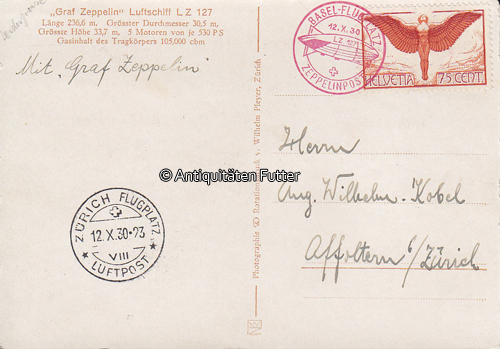 „Graf Zeppelin" Luftschiff LZ 127
Länge 236,6 m. Grösster Durchmesser 30,5 m,
Grösste Höhe 33,7 m, 5 Motoren von je 530 PS
Gasinhalt des Tragkörpers 105,000 cbm
Mit „Graf Zeppelin"
BASEL-FLUGPLATZ
12.X.30
LZ 127
ZEPPELINPOST
HELVETIA 75 CENT.
Photographie & Rotationsdruck v. Wilhelm Pleyer, Zürich
Herrn
Aug. Wilhelm-Kobel
Affoltern b/Zürich
© Antiquitäten Futter
ZÜRICH FLUGPLATZ
12.X.30-23
VIII
LUFTPOST